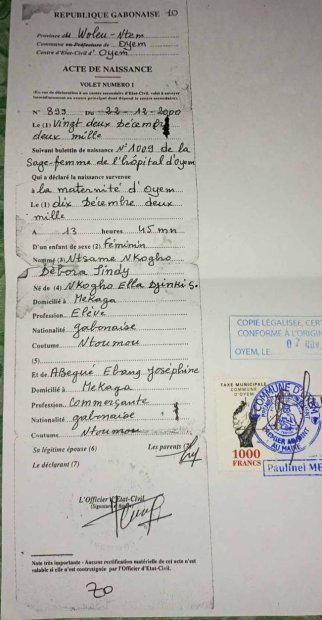 REPUBLIQUE GABONAISE 10
Province du Woleu-Ntem
Commune ou Préfecture de Oyem
Centre d'Etat-Civil d' Oyem
ACTE DE NAISSANCE
VOLET NUMERO I
N° 899 Du 22-12-2000
Le (1) Vingt deux Décembre
deux mille
Suivant bulletin de naissance N°1009 de la
Sage-femme de l'hôpital d'Oyem
Qui a déclaré la naissance survenue
à la maternité d'Oyem
Le (1) dix Décembre deux
mille
A 13 heures 45 mn
D'un enfant de sexe (2) Féminin
Nommé (3) Ntsame Nkogho
Débora Jindy
Né de (4) Nkogho Ella Djinki S.
Domicilié à Mekaga
Profession Elève
Nationalité gabonaise
Coutume Ntoumou
(5)
Et de Abegué Ebang Joséphine
Domicilié à Mekaga
Profession Commerçante
Nationalité gabonaise
Coutume Ntoumou
Sa légitime épouse (6) Les parents (7)
Le déclarant (7)
L'Officier d'Etat-Civil
Note très importante - Aucune rectification matérielle de cet acte n'est
valable si elle n'est contresignée par l'Officier d'Etat-Civil.
20
COPIE LEGALISEE, CERT
CONFORME A L'ORIGIN
OYEM, LE 07 NOV
TAXE MUNICIPALE
COMMUNE
D'OYEM
1000
FRANCS
COMMUNE D'OYEM
PREMIER ADJOINT
AU MAIRE
Paulinel ME